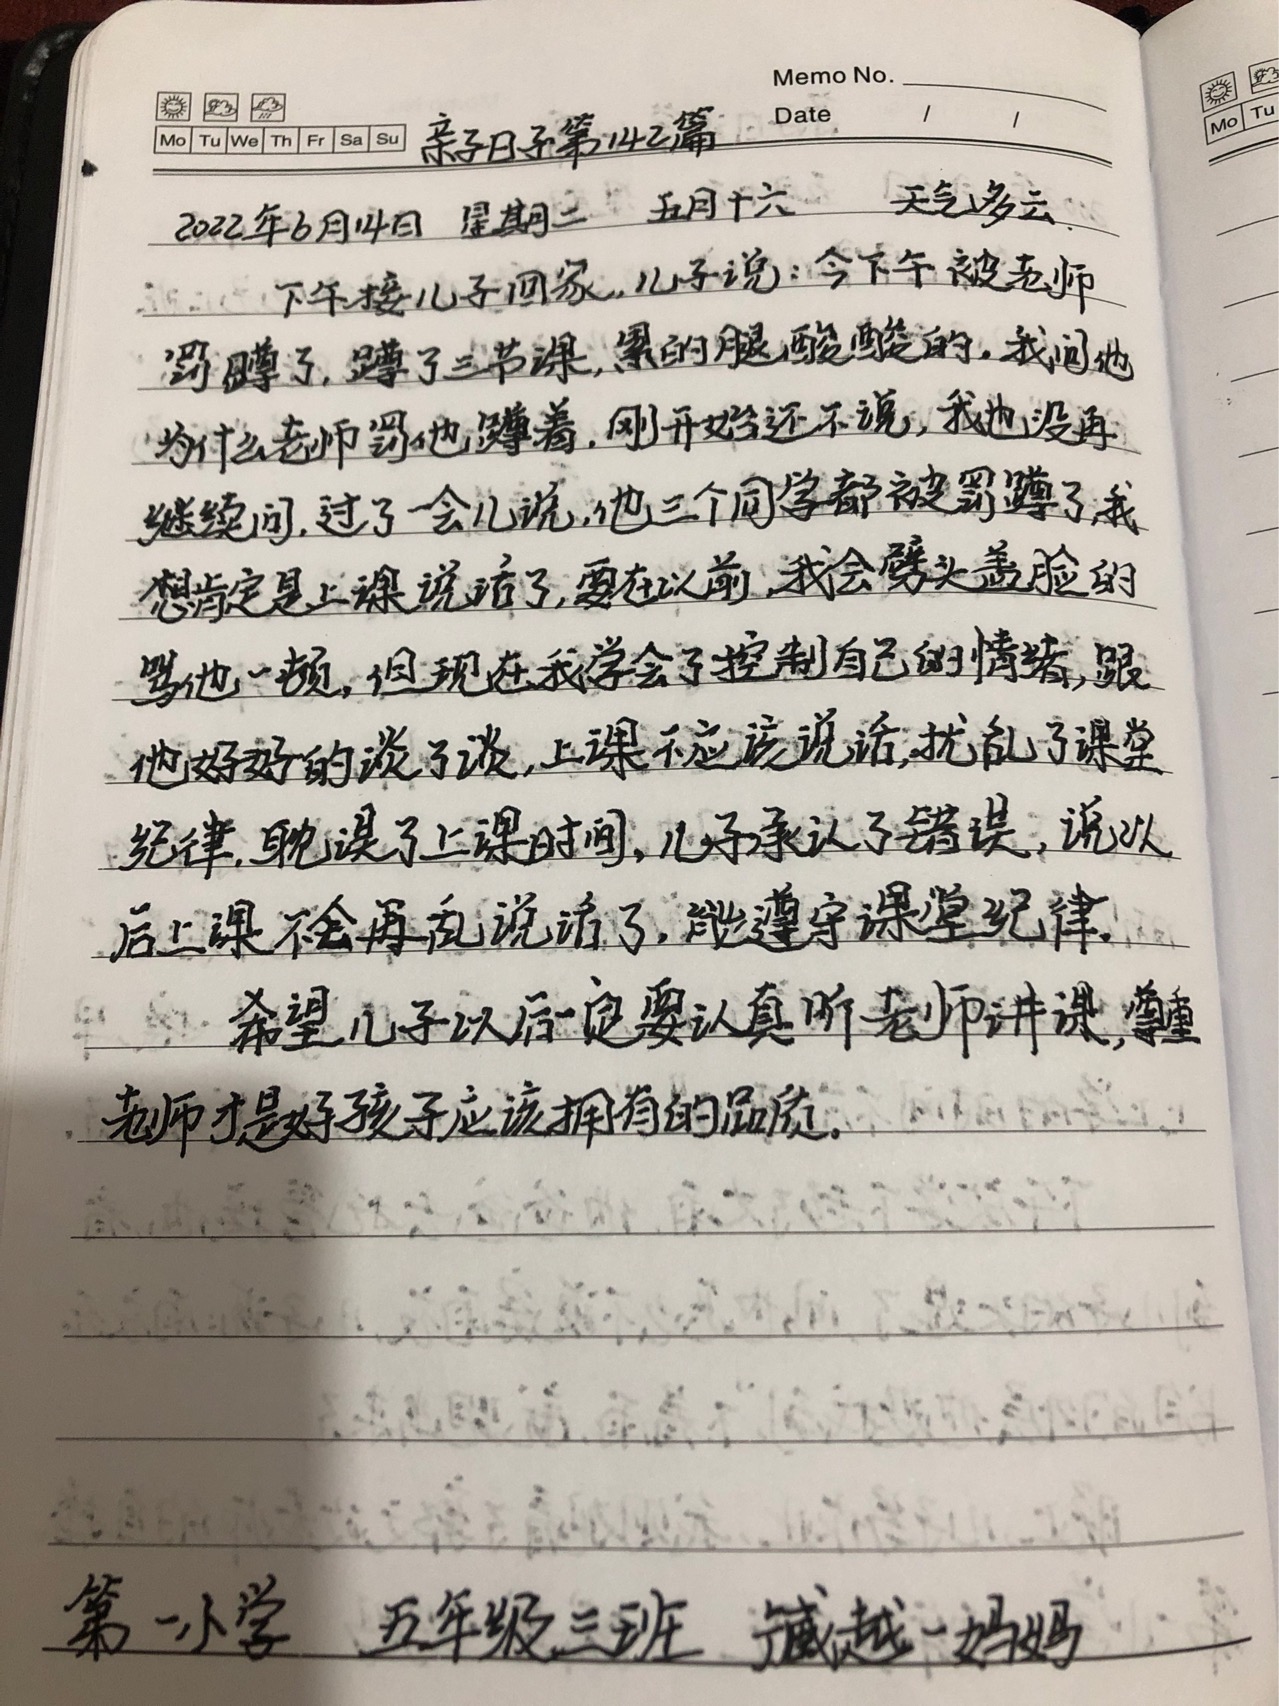 Memo No.
Date / /
Mo Tu We Th Fr Sa Su
Mo Tu
亲子日子第142篇
2022年6月14日 星期二 五月十六 天气多云.
下午接儿子回家,儿子说:今下午被老师
罚蹲了,蹲了三节课,累的腿酸酸的.我问他
为什么老师罚他蹲着,刚开始还不说,我也没再
继续问,过了一会儿说,他三个同学都被罚蹲了,我
想肯定是上课说话了,要在以前,我会劈头盖脸的
骂他一顿,但现在我学会了控制自己的情绪,跟
他好好的谈了谈,上课不应该说话,扰乱了课堂
纪律,耽误了上课时间,儿子承认了错误,说以
后上课不会再乱说话了,能遵守课堂纪律.
希望儿子以后一定要认真听老师讲课,尊重
老师才是好孩子应该拥有的品质.
第一小学 五年级三班 臧越一妈妈